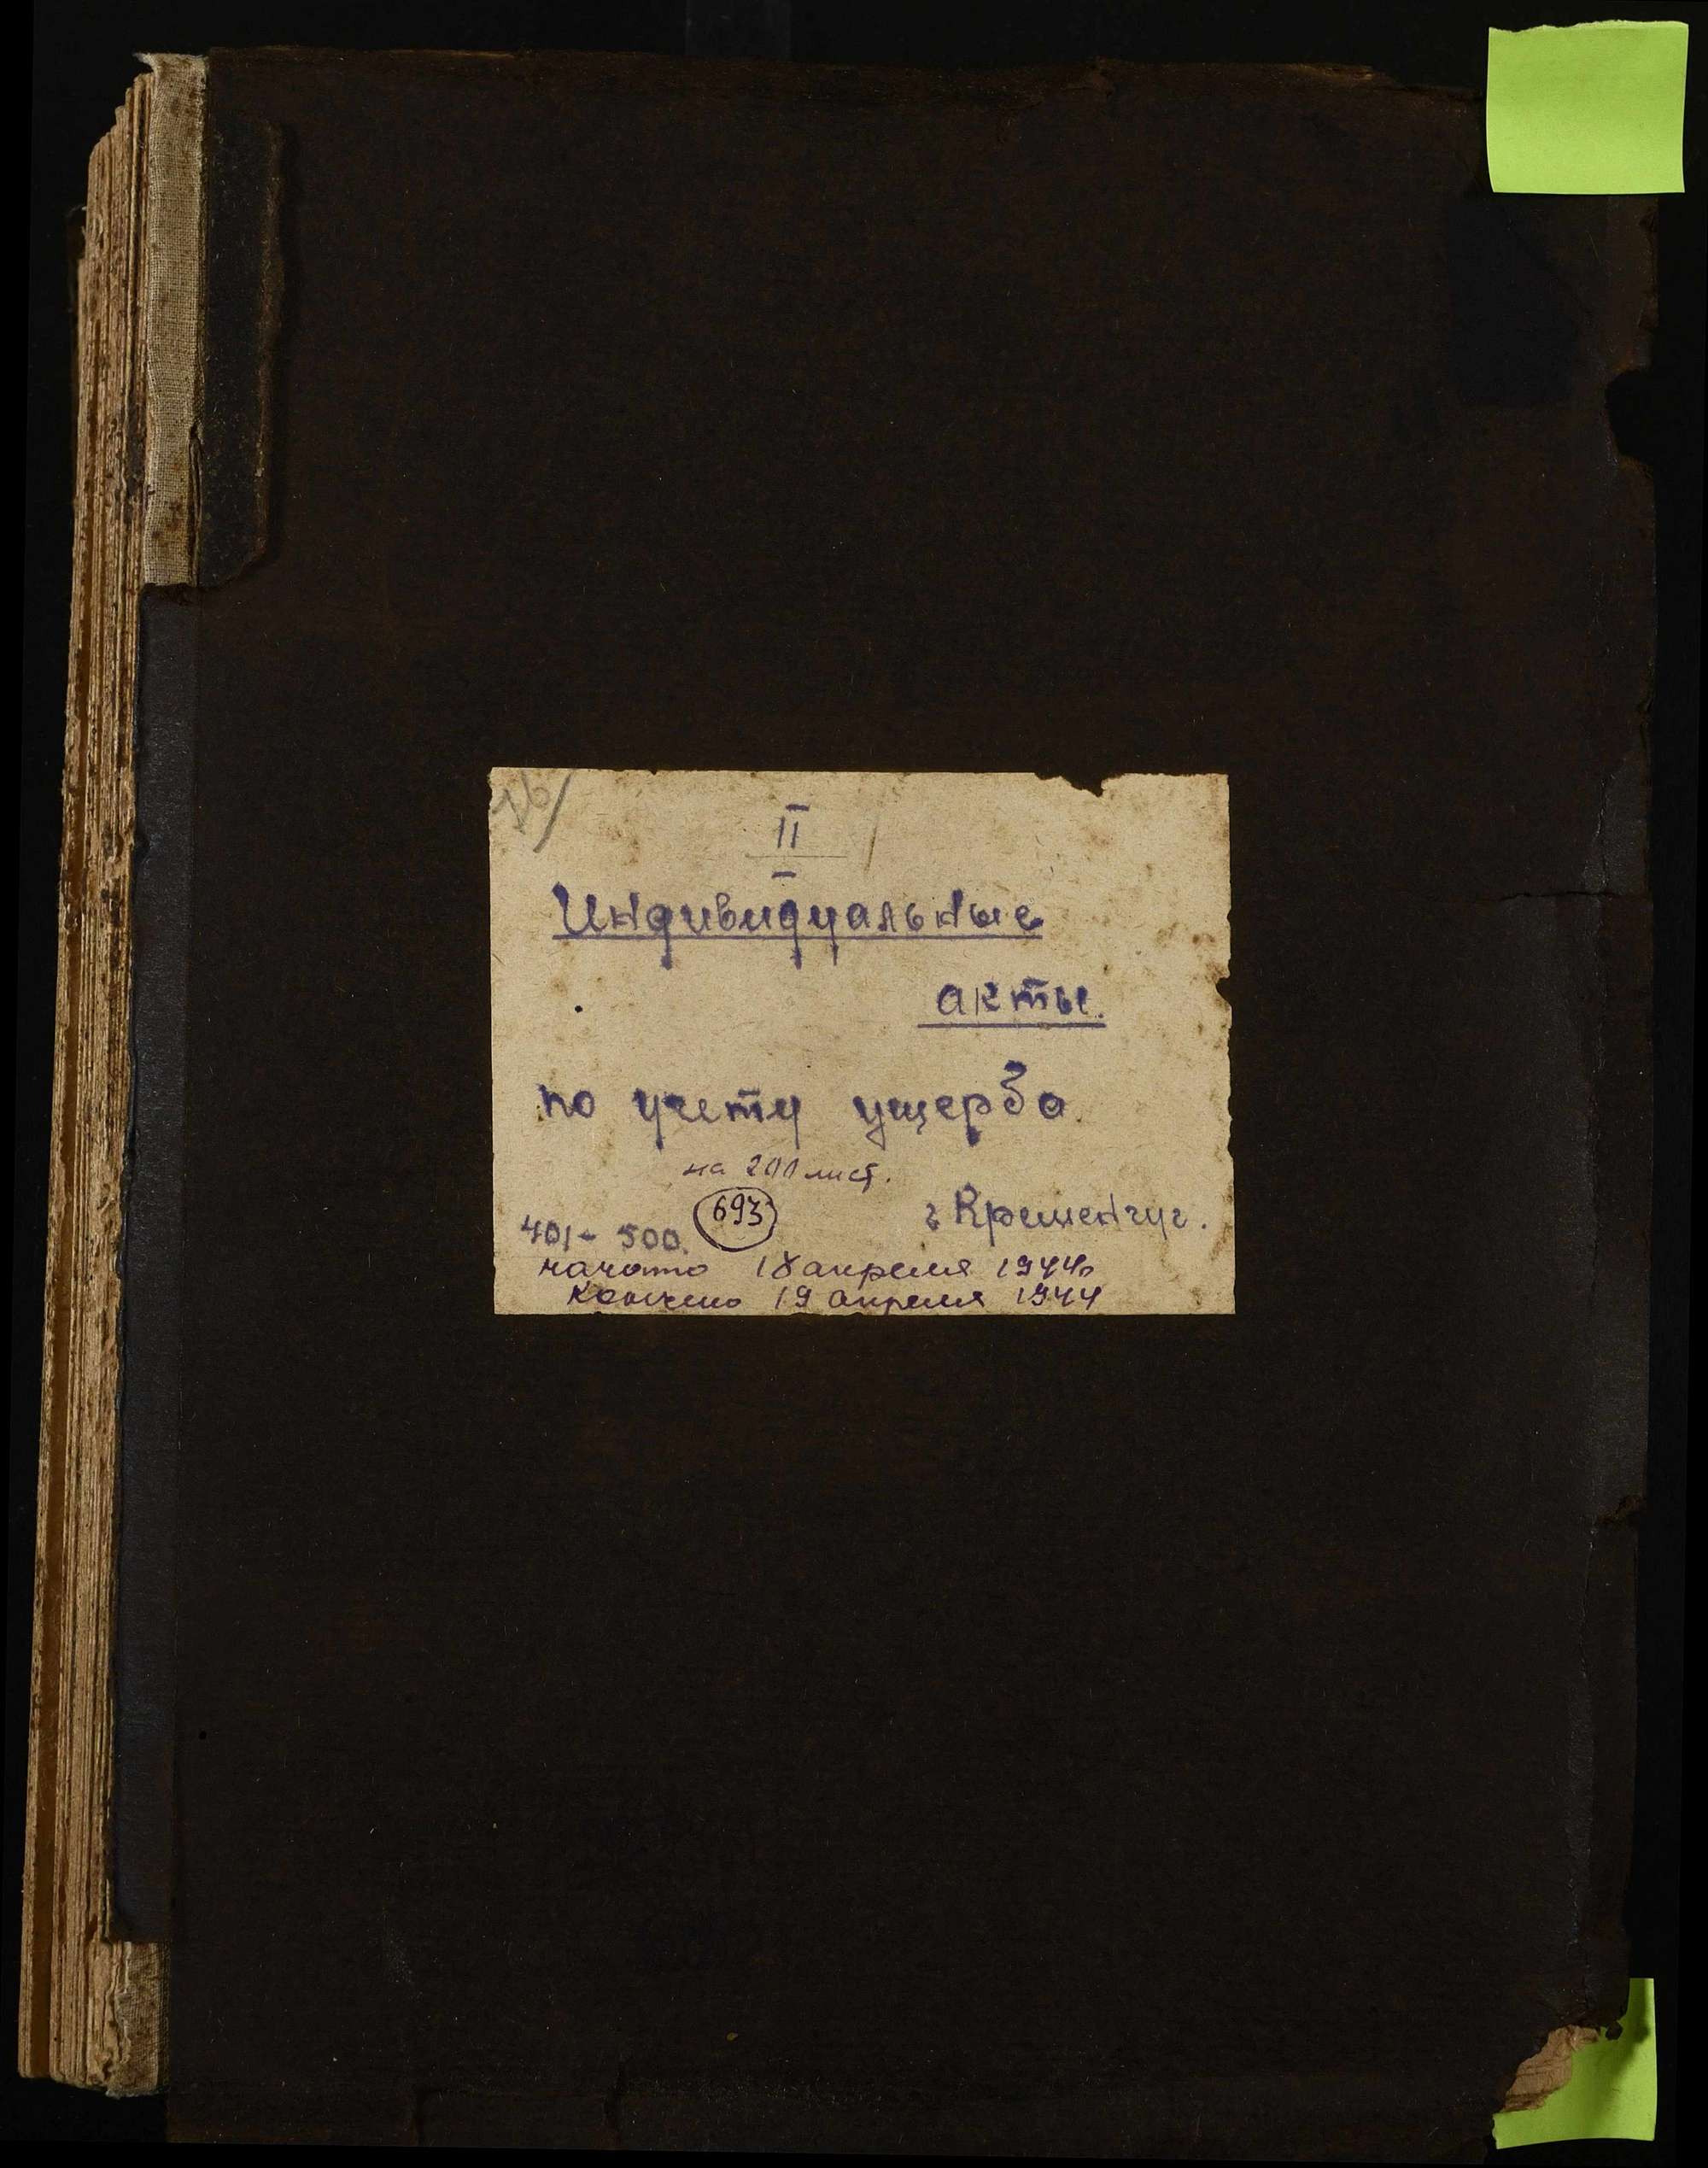 II
Индивидуальные
акты.
по учету ущерба
на 200 лист.
693
г Кременчуг.
401 - 500.
начато 18 апреля 1944г
Кончено 19 апреля 1944